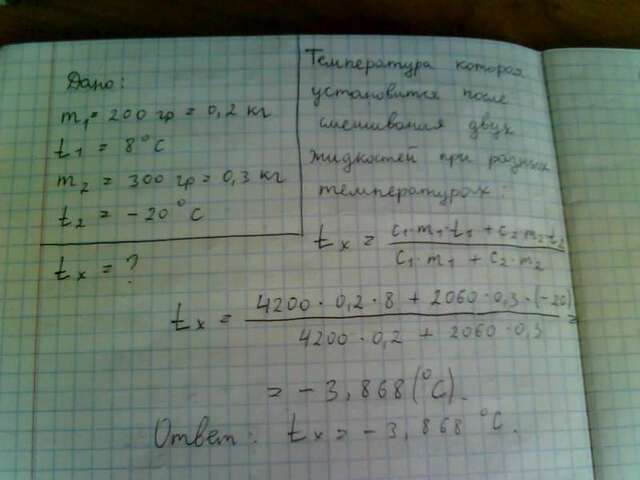 Дано:
m₁ = 200 гр = 0,2 кг
t₁ = 8°C
m₂ = 300 гр = 0,3 кг
t₂ = -20°C
tₓ = ?
Температура которая
установится после
смешивания двух
жидкостей при разных
температурах:
tₓ = (c₁·m₁·t₁ + c₂·m₂·t₂) / (c₁·m₁ + c₂·m₂)
tₓ = (4200·0,2·8 + 2060·0,3·(-20)) / (4200·0,2 + 2060·0,3) =
= -3,868(°C).
Ответ: tₓ = -3,868 °C.